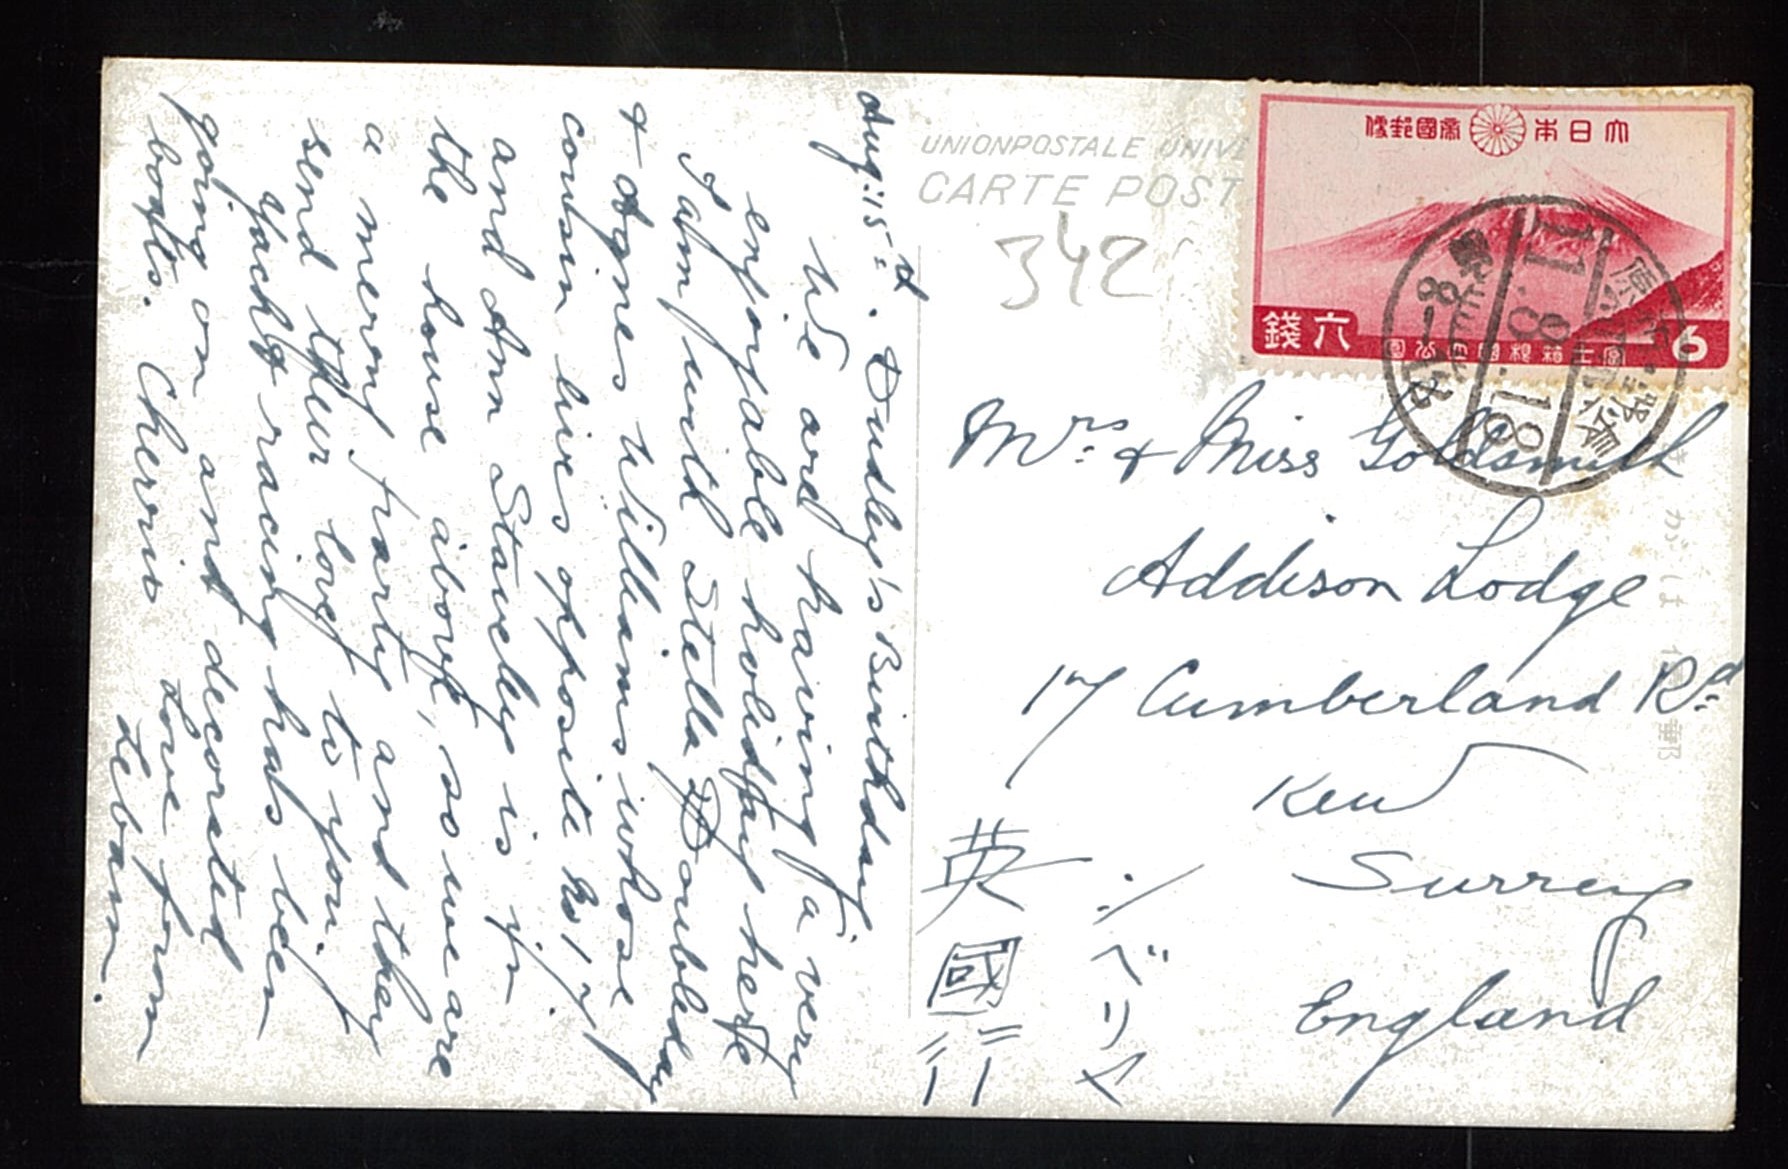 Aug: 15th. Dudley's Birthday.
We are having a very
enjoyable holiday here
I am with Stella Doubleday
& Agnes Williams whose
cousin lives opposite No 17,
and Ann Staveley is in
the house above, so we are
a merry party and they
send their love to you.
Yacht racing has been
going on and decorated
boats. Cheerio Love from
UNION POSTALE UNIVE
CARTE POST
342
大日本帝國郵便
六錢
富士箱根國立公園
6
11.8.18
Mrs: & Miss Goldsmith
Addison Lodge
17 Cumberland Rd
Kew
Surrey
England
シベリヤ
英國行
郵便はがき